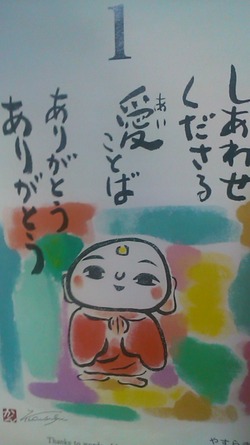 1
しあわせ
くださる
愛ことば
あい
ありがとう
ありがとう